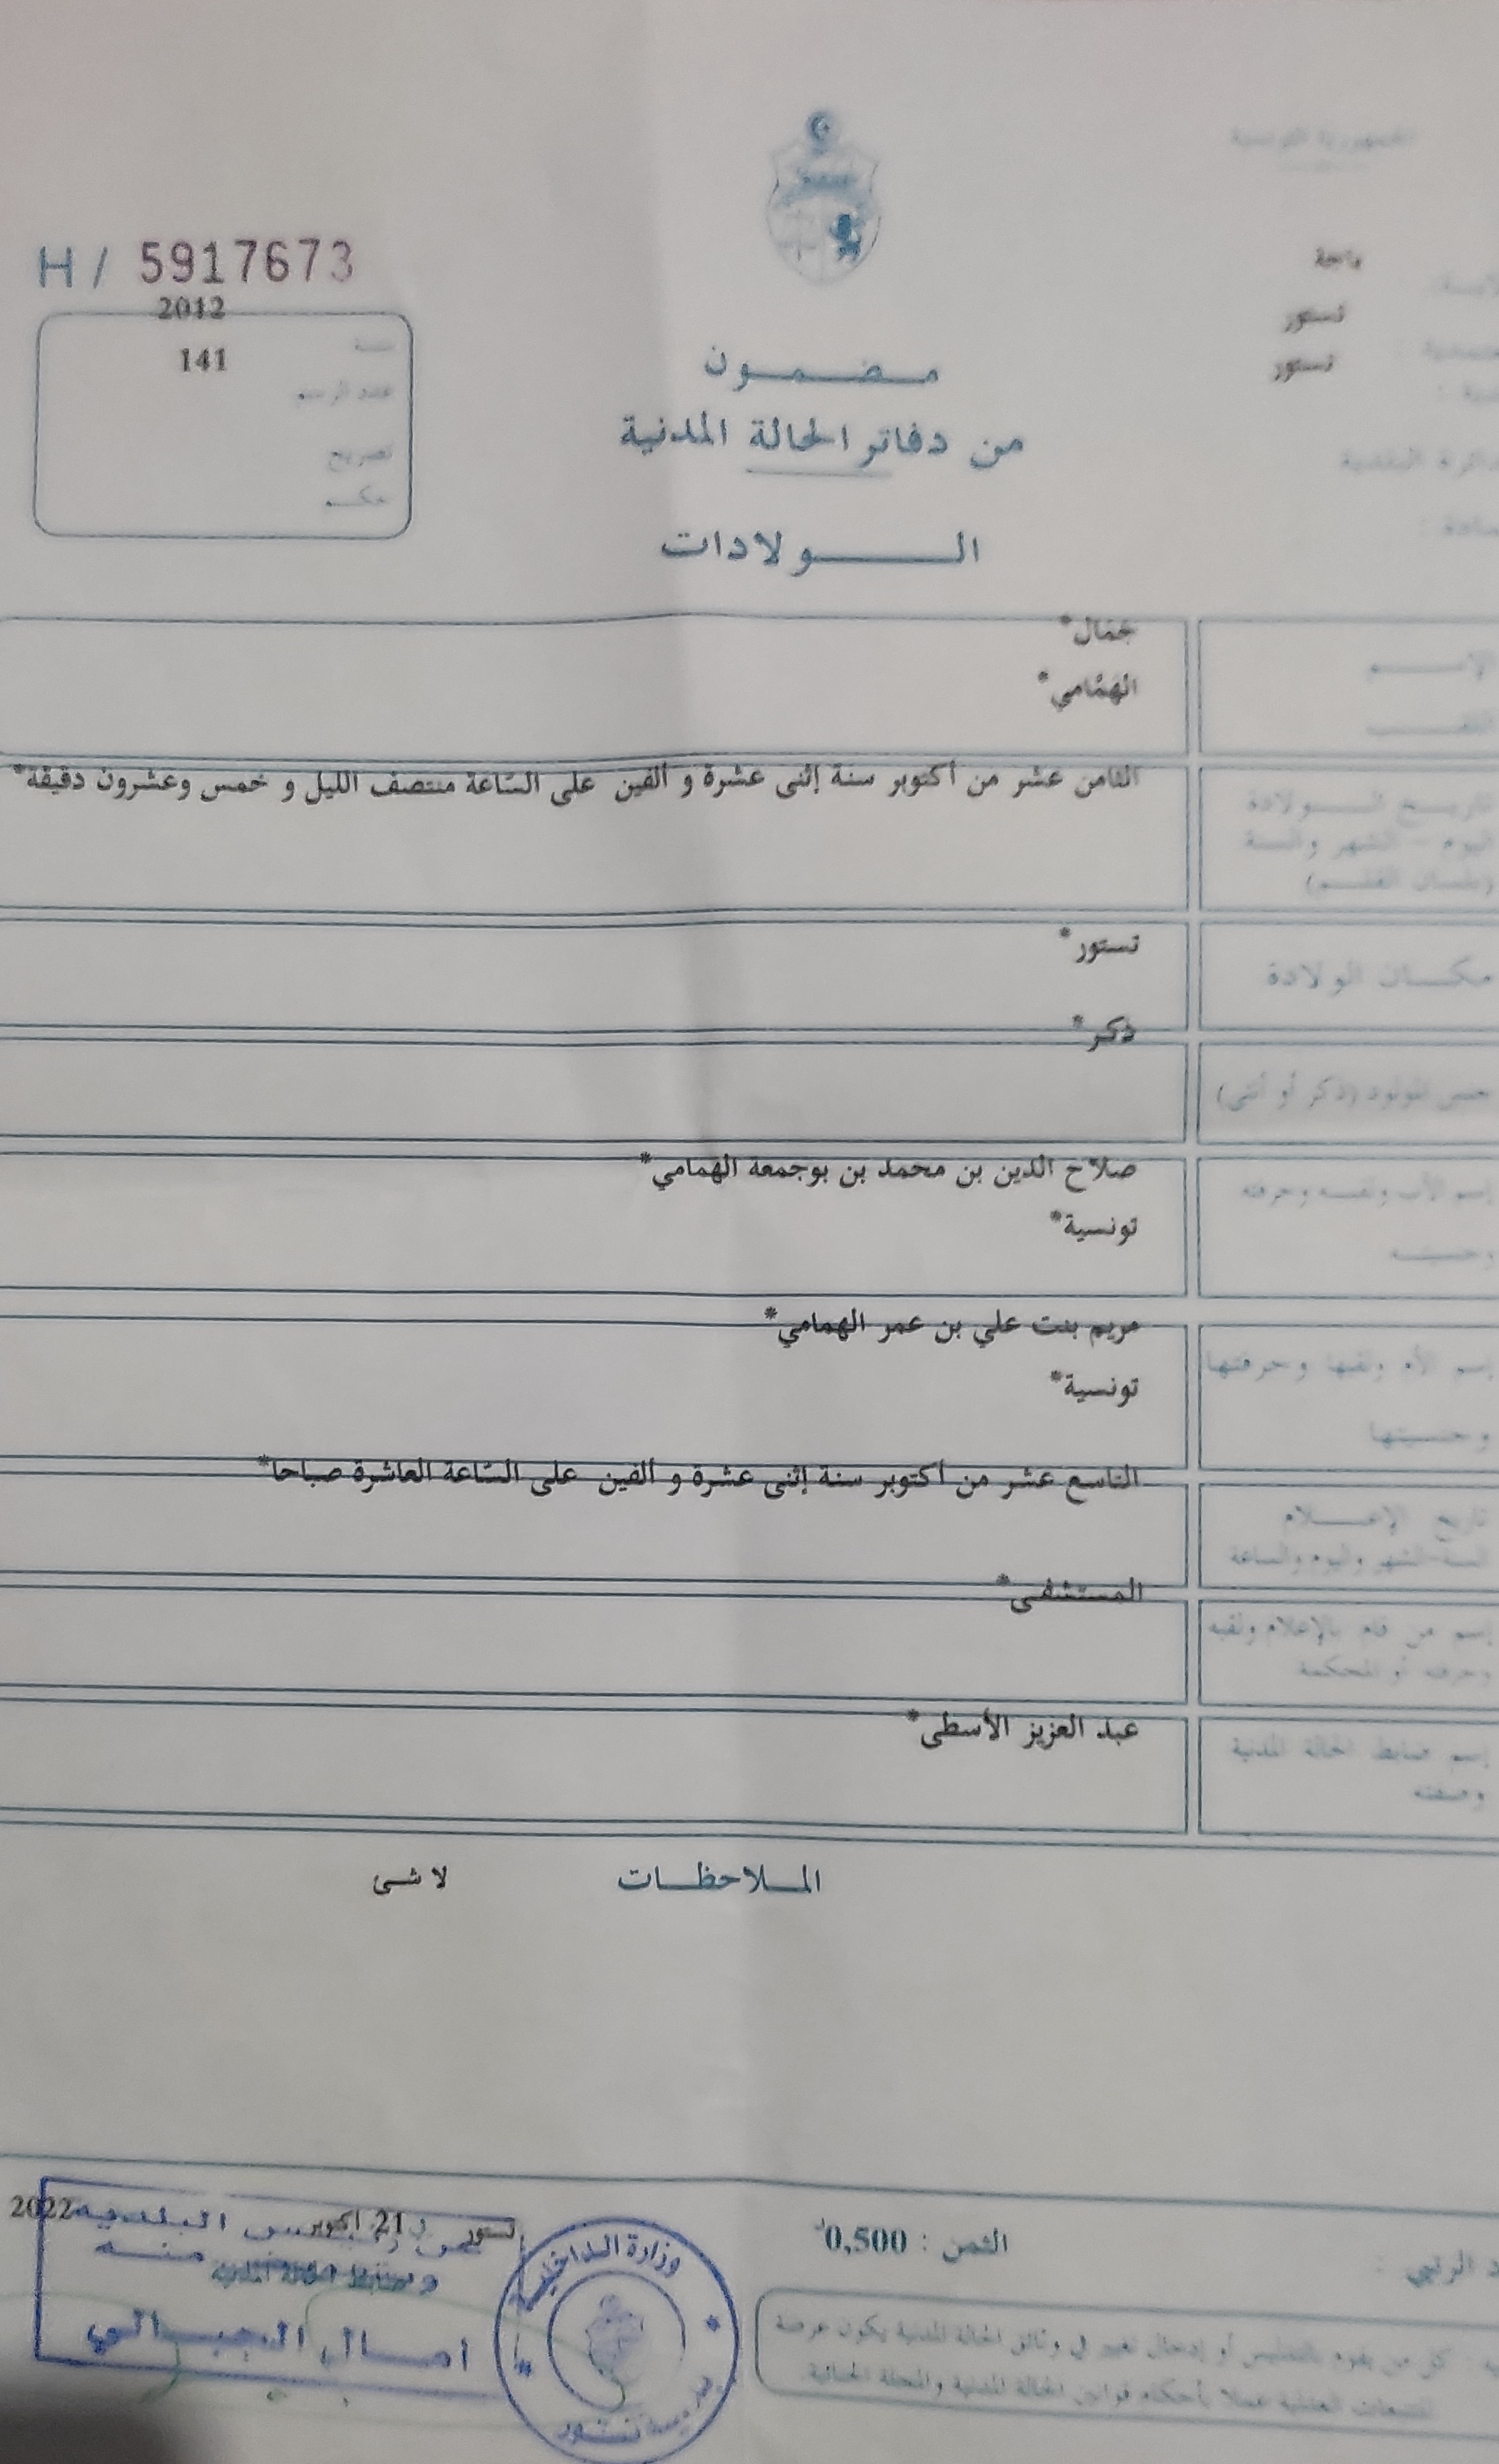 الجمهورية التونسية
H / 5917673
باجة
تستور
تستور
2012
سنة
141
عدد الرسم
تصريح
حكم
مضمون
من دفاتر الحالة المدنية
الولادات
الدائرة البلدية
الإسم
جمال*
اللقب
الهمّامي*
تاريخ الولادة
اليوم - الشهر والسنة
(بلسان القلم)
الثامن عشر من أكتوبر سنة إثنى عشرة و ألفين على السّاعة منتصف الليل و خمس وعشرون دقيقة*
مكان الولادة
تستور*
جنس المولود (ذكر أو أنثى)
ذكر*
إسم الأب ولقبه وحرفته
وجنسيته
صلاح الدين بن محمد بن بوجمعة الهمامي*
تونسية*
إسم الأم ولقبها وحرفتها
وجنسيتها
مريم بنت علي بن عمر الهمامي*
تونسية*
تاريخ الإعلام
السنة-الشهر واليوم والساعة
التاسع عشر من أكتوبر سنة إثنى عشرة و ألفين على السّاعة العاشرة صباحا*
إسم من قام بالإعلام ولقبه
وحرفته أو المحكمة
المستشفى*
إسم ضابط الحالة المدنية
وصفته
عبد العزيز الأسطى*
الملاحظات
لا شى
تستور
21 أكتوبر 2022
البلدية
ضابط الحالة المدنية
امال الجبالي
وزارة الداخلية
تستور
الثمن : 0,500
كل من يقوم بالتدليس أو إدخال تغيير في وثائق الحالة المدنية يكون عرضة
للتتبعات العدلية عملا بأحكام قوانين الحالة المدنية والمجلة الجنائية